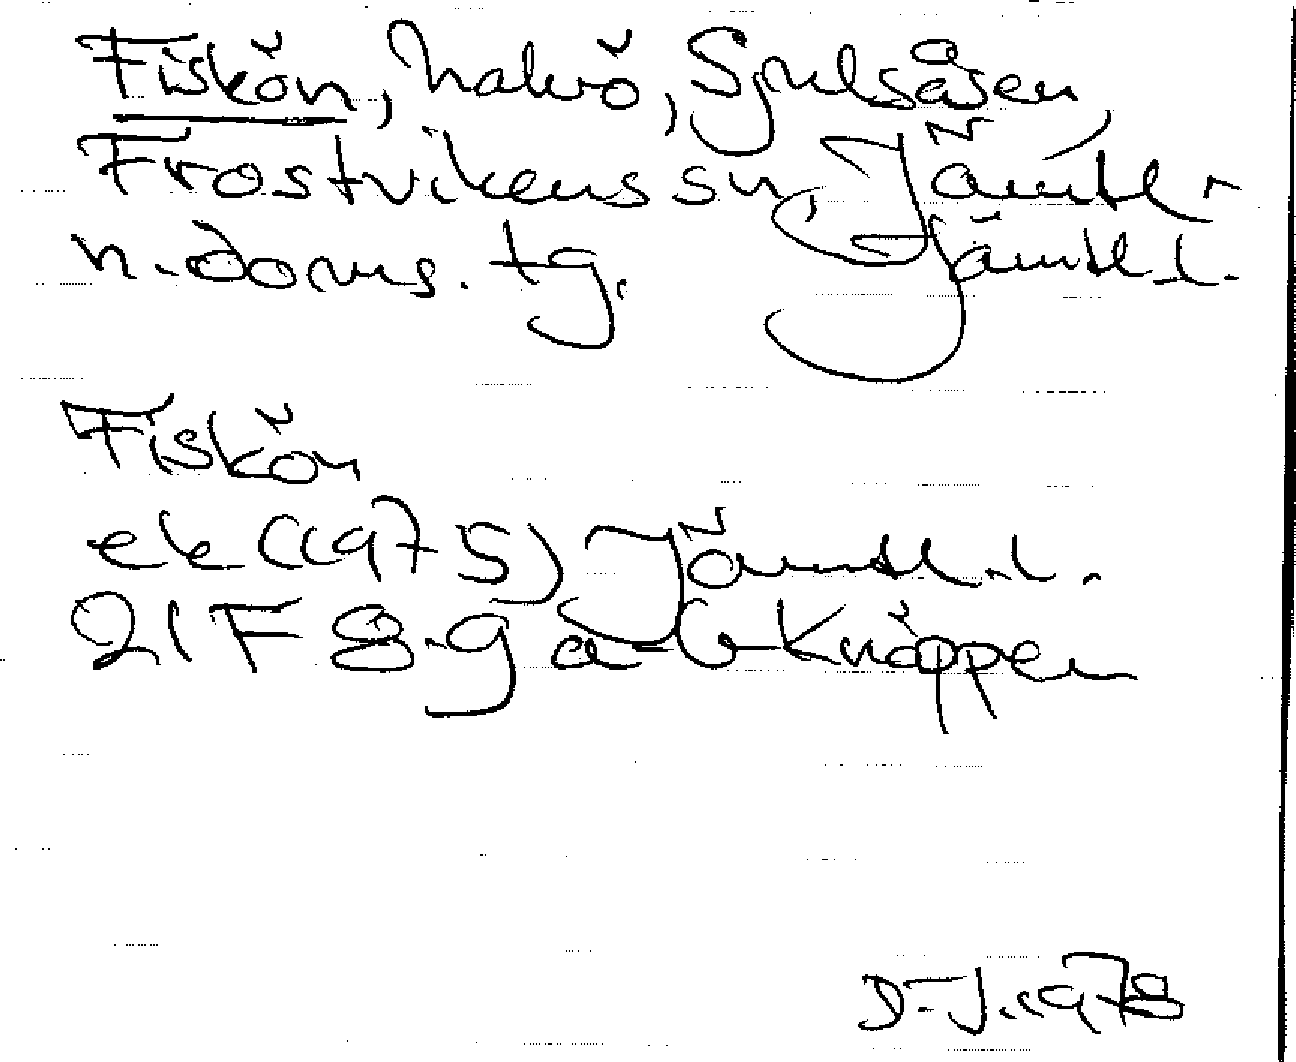 Fiskön, halvö, Sjulsåsen,
Frostvikens sn, Jämtl.
n. doms. tg. Jämtl. l.
Fiskön
ek (1975) Jämtl. l.
21 F 8-g a-b Knoppen
D-J. 1978